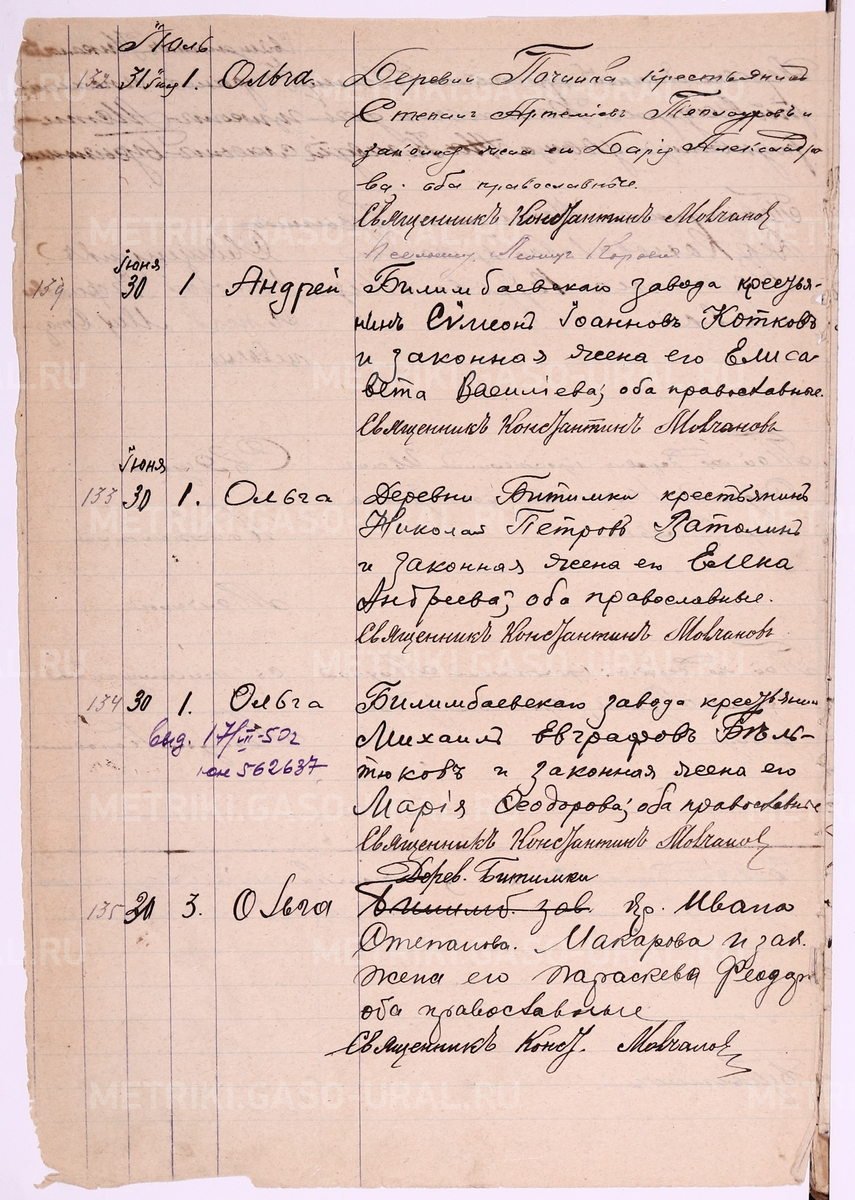 Іюль
132 31 Іюля 1. Ольга Деревни Починка крестьянинъ
Стефанъ Артеміевъ и
законная жена его Дарія Александро
ва. оба православные.
Священникъ Константинъ Молчановъ
Іюня
139 30 1 Андрей Билимбаевскаго завода крестья-
нинъ Сѵмеонъ Іоанновъ Котковъ
и законная жена его Елиса-
вета Василіева; оба православные.
Священникъ Константинъ Молчановъ
Іюня
133 30 1. Ольга Деревни Битимки крестьянинъ
Николай Петровъ Ватолинъ
и законная жена его Елена
Андреева; оба православные.
Священникъ Константинъ Молчановъ
134 30 1. Ольга Билимбаевскаго завода крестьянинъ
Михаилъ Евграфовъ Бѣль-
тюковъ и законная жена его
Марія Ѳеодорова; оба православные
Священникъ Константинъ Молчановъ
Выд. 17/VII-50г
562637
Дерев. Битимки
135 30 3. Ольга Билимб. зав. кр. Ивана
Степанова. Макарова и зак.
жена его Параскева Феодор
оба православные
Священникъ Конст. Молчановъ
METRIKI.GASO-URAL.RU